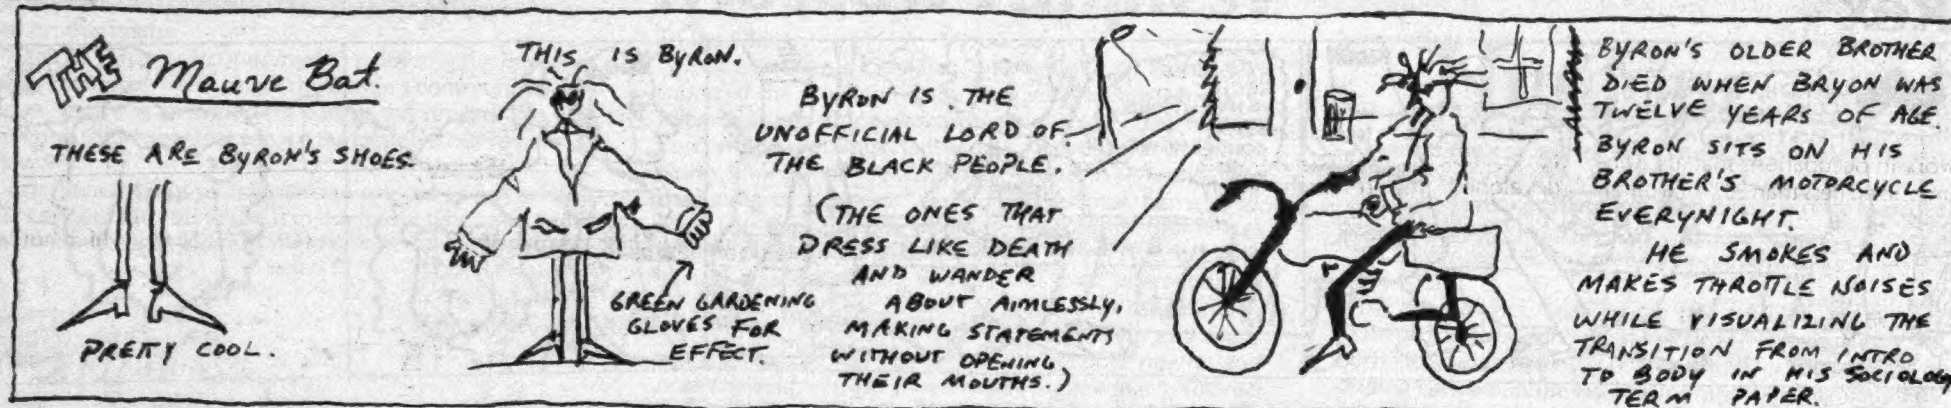 THE Mauve Bat.
THESE ARE BYRON'S SHOES.
PRETTY COOL.
THIS IS BYRON.
GREEN GARDENING
GLOVES FOR
EFFECT.
BYRON IS THE
UNOFFICIAL LORD OF
THE BLACK PEOPLE.
(THE ONES THAT
DRESS LIKE DEATH
AND WANDER
ABOUT AIMLESSLY,
MAKING STATEMENTS
WITHOUT OPENING
THEIR MOUTHS.)
BYRON'S OLDER BROTHER
DIED WHEN BRYON WAS
TWELVE YEARS OF AGE.
BYRON SITS ON HIS
BROTHER'S MOTORCYCLE
EVERYNIGHT.
HE SMOKES AND
MAKES THROTTLE NOISES
WHILE VISUALIZING THE
TRANSITION FROM INTRO
TO BODY IN HIS SOCIOLOGY
TERM PAPER.